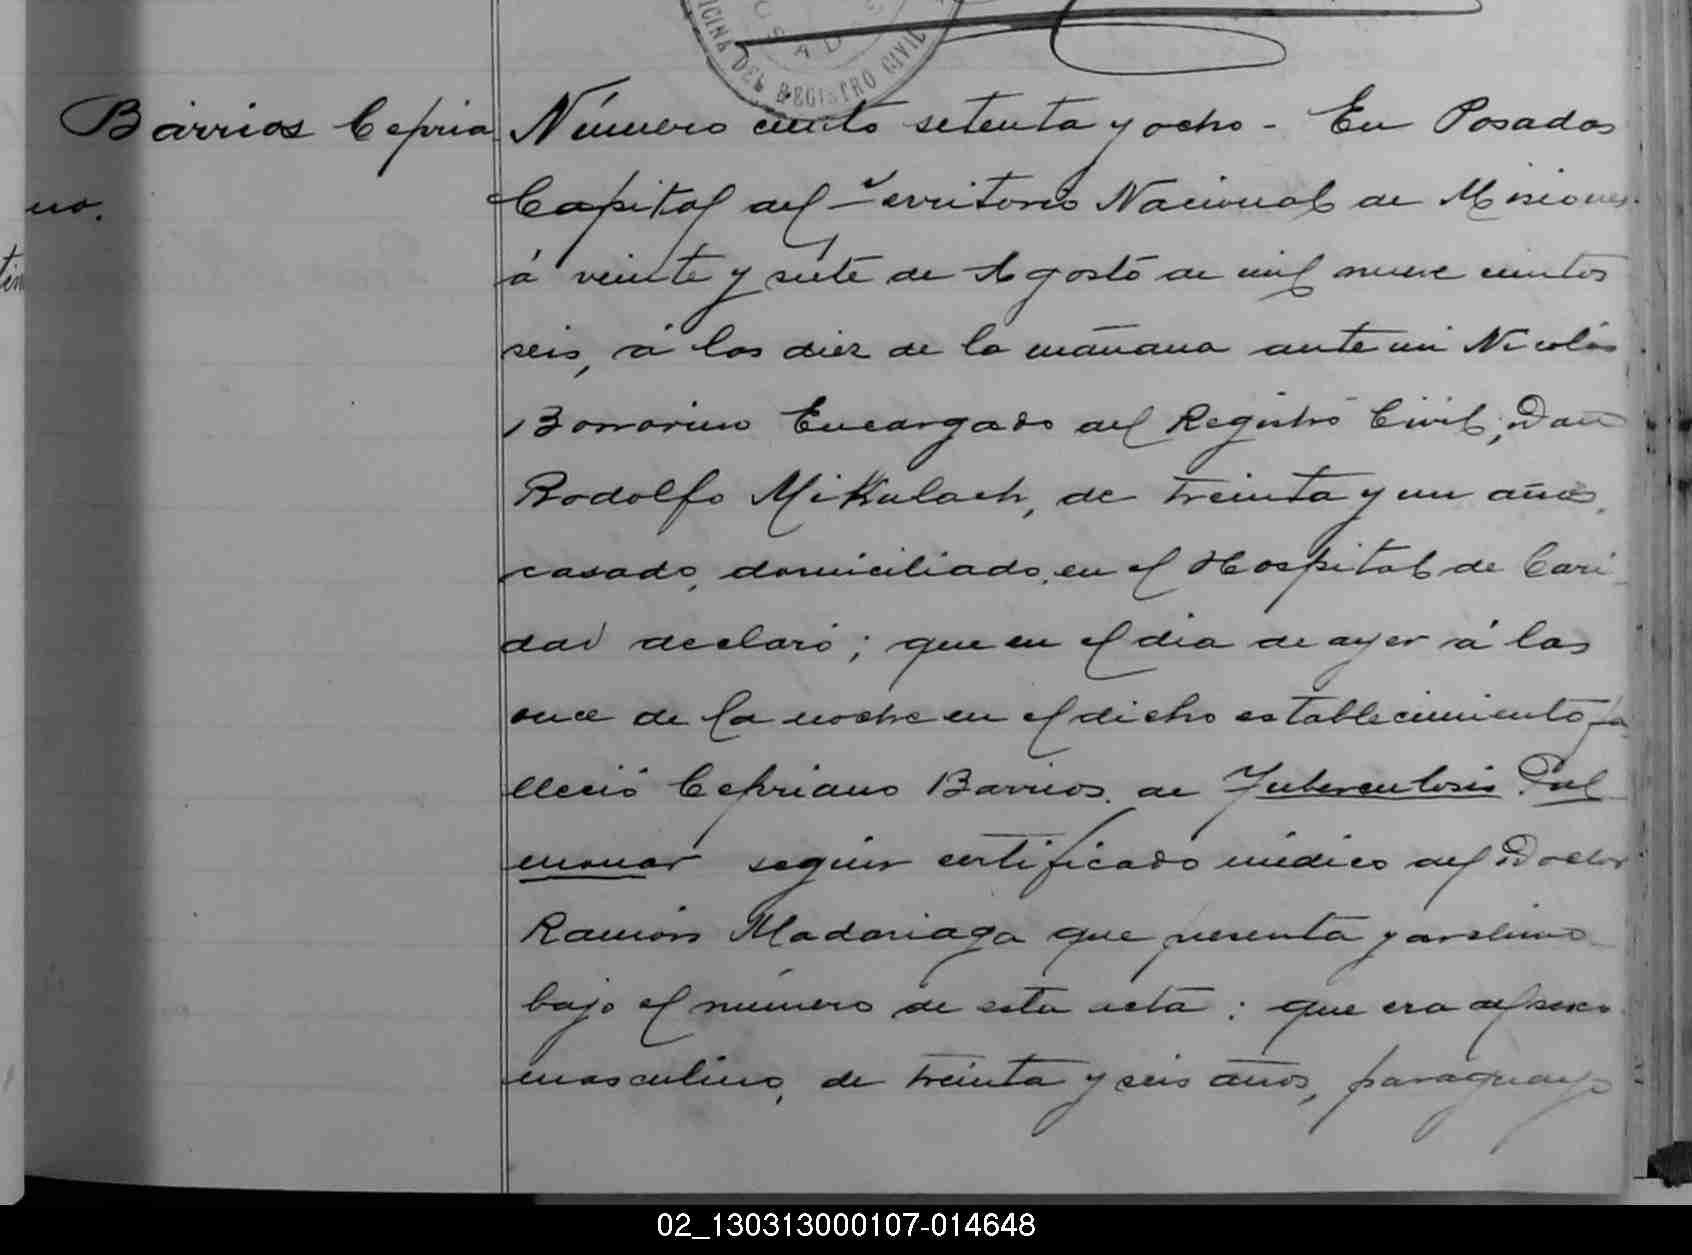 OFICINA DEL REGISTRO CIVIL
Barrios Cepria
no.
Número ciento setenta y ocho - En Posadas
Capital del Territorio Nacional de Misiones
á veinte y siete de Agosto de mil nueve cientos
seis, á las diez de la mañana ante mi Nicolás
Bonorino Encargado del Registro Civil, Don
Rodolfo Mikulach, de treinta y un años,
casado, domiciliado, en el Hospital de Cari
dad declaró; que en el dia de ayer á las
once de la noche en el dicho establecimiento fa
lleció Cepriano Barrios. de Tuberculosis Pul
monar segun certificado médico del Doctor
Ramón Madariaga que presenta y archivo
bajo el número de esta acta: que era del sexo
masculino, de treinta y seis años, paraguayo
02_130313000107-014648